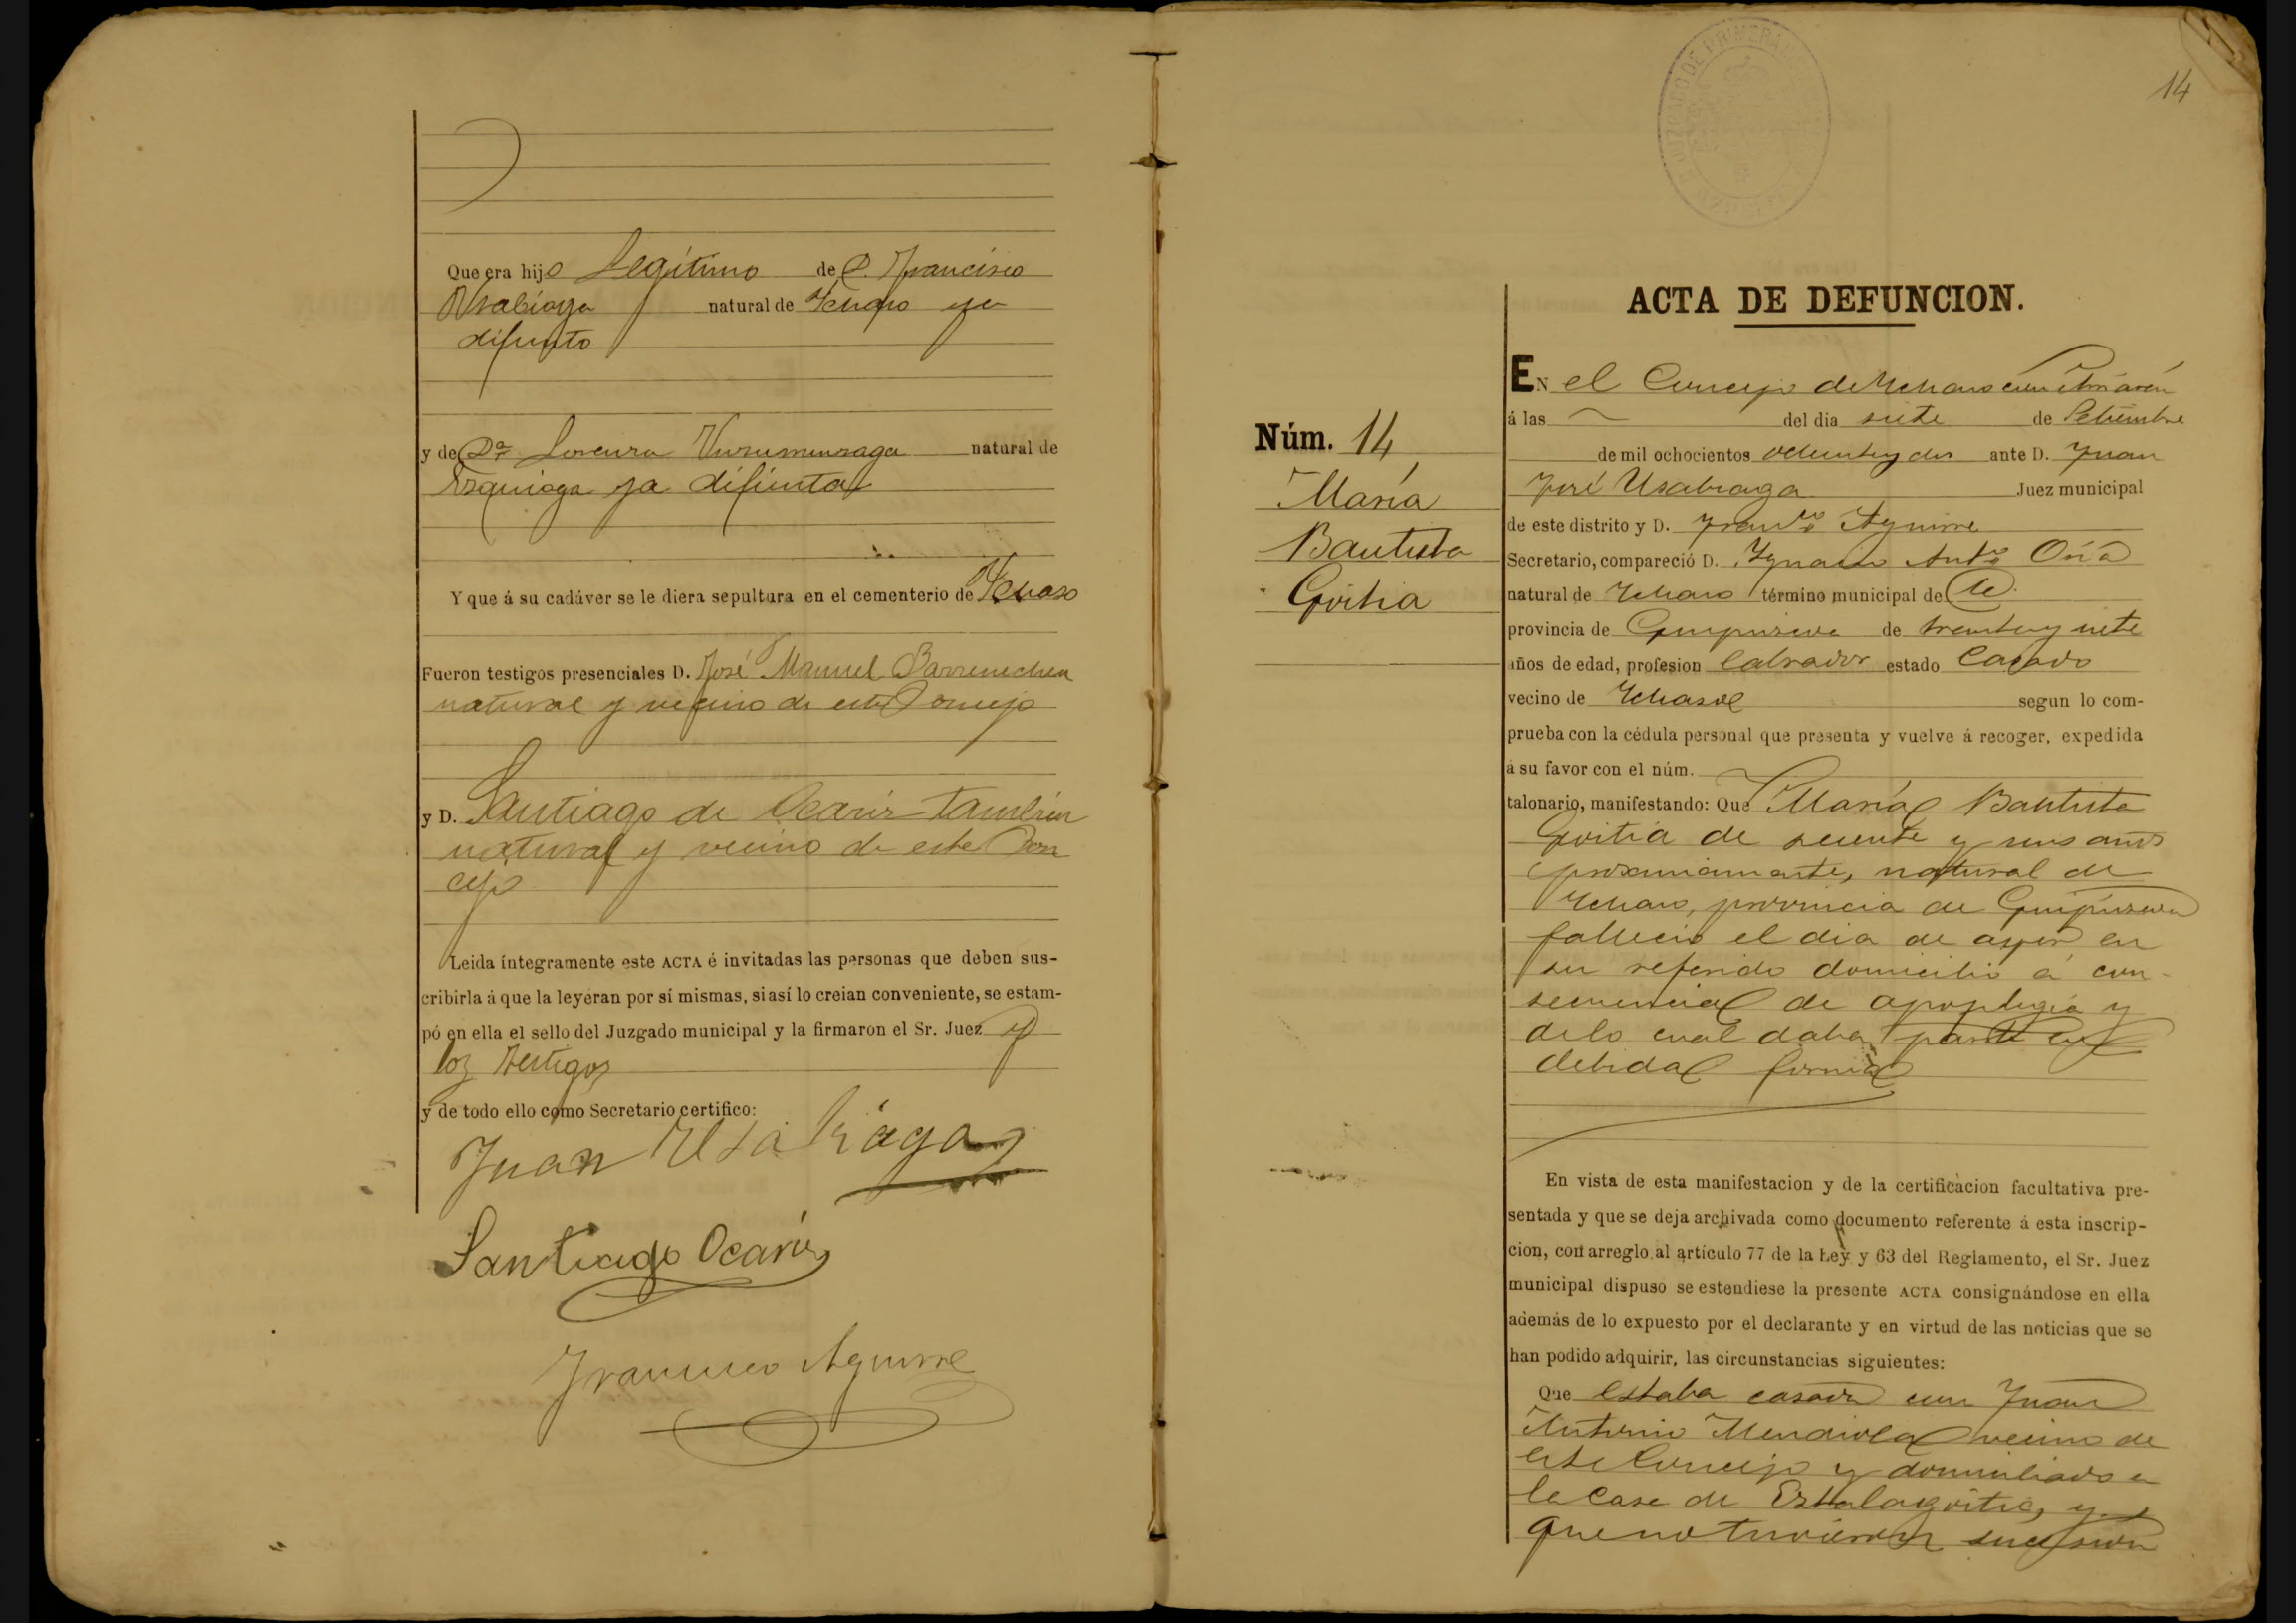 Que era hijo Legítimo de D. Francisco
Usabiaga natural de Ychaso ya
difunto
y de Dª Lorenza natural de
Ezquioga ya difunta
Y que á su cadáver se le diera sepultura en el cementerio de Ychaso
Fueron testigos presenciales D. José Manuel Barrenechea
natural y vecino de este Concejo
y D. Santiago de Ocariz tambien
natural y vecino de este Con
cejo
Leida íntegramente este ACTA é invitadas las personas que deben sus-
cribirla á que la leyeran por sí mismas, si así lo creian conveniente, se estam-
pó en ella el sello del Juzgado municipal y la firmaron el Sr. Juez y
los testigos
y de todo ello como Secretario certifico:
Juan Usabiaga
Santiago Ocariz
Francisco Aguirre
14
JUZGADO DE PRIMERA
ACTA DE DEFUNCION.
Núm. 14
María
Bautista
Goitia
EN el Concejo de Ychaso
á las del dia siete de Setiembre
de mil ochocientos ochenta y dos ante D. Juan
José Usabiaga Juez municipal
de este distrito y D. Franco Aguirre
Secretario, compareció D. Ygnacio Anto Oria
natural de Ychaso término municipal de id.
provincia de Guipuzcoa de treinta y siete
años de edad, profesion labrador estado Casado
vecino de Ychaso segun lo com-
prueba con la cédula personal que presenta y vuelve á recoger, expedida
á su favor con el núm.
talonario, manifestando: Que María Bautista
Goitia de y seis años
natural de
Ychaso, provincia de Guipuzcoa
falleció el dia de ayer en
su referido domicilio á con-
secuencia de apoplegia y
de lo cual daba parte en
debida forma
En vista de esta manifestacion y de la certificacion facultativa pre-
sentada y que se deja archivada como documento referente á esta inscrip-
cion, con arreglo al artículo 77 de la Ley y 63 del Reglamento, el Sr. Juez
municipal dispuso se estendiese la presente ACTA consignándose en ella
además de lo expuesto por el declarante y en virtud de las noticias que se
han podido adquirir, las circunstancias siguientes:
Que estaba casada con Juan
Antonio Mendiola vecino de
este Concejo y domiciliado en
la Casa de y
que no tuvieron sucesion